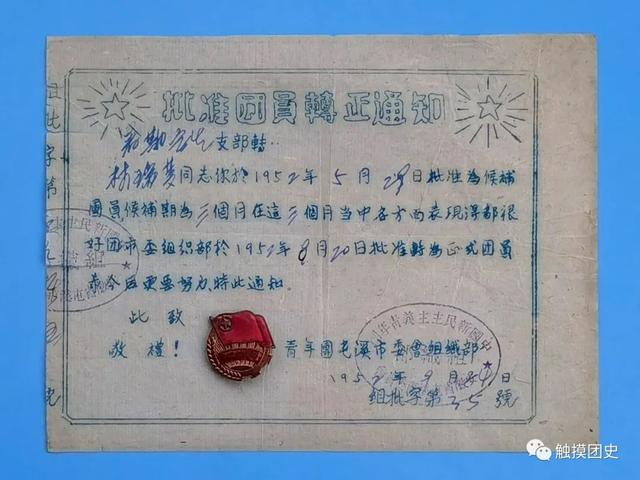 批准团員轉正通知
支部轉：
同志你於1952年5月29日批准為候補
團員候補期為三個月在這三個月当中各方面表現得都很
好团市委组织部於1952年8月20日批准轉為正式团員
今后更要努力特此通知。
此致
敬禮！
青年團屯溪市委會組織部
1952年9月24日
组批字第35號
触摸团史